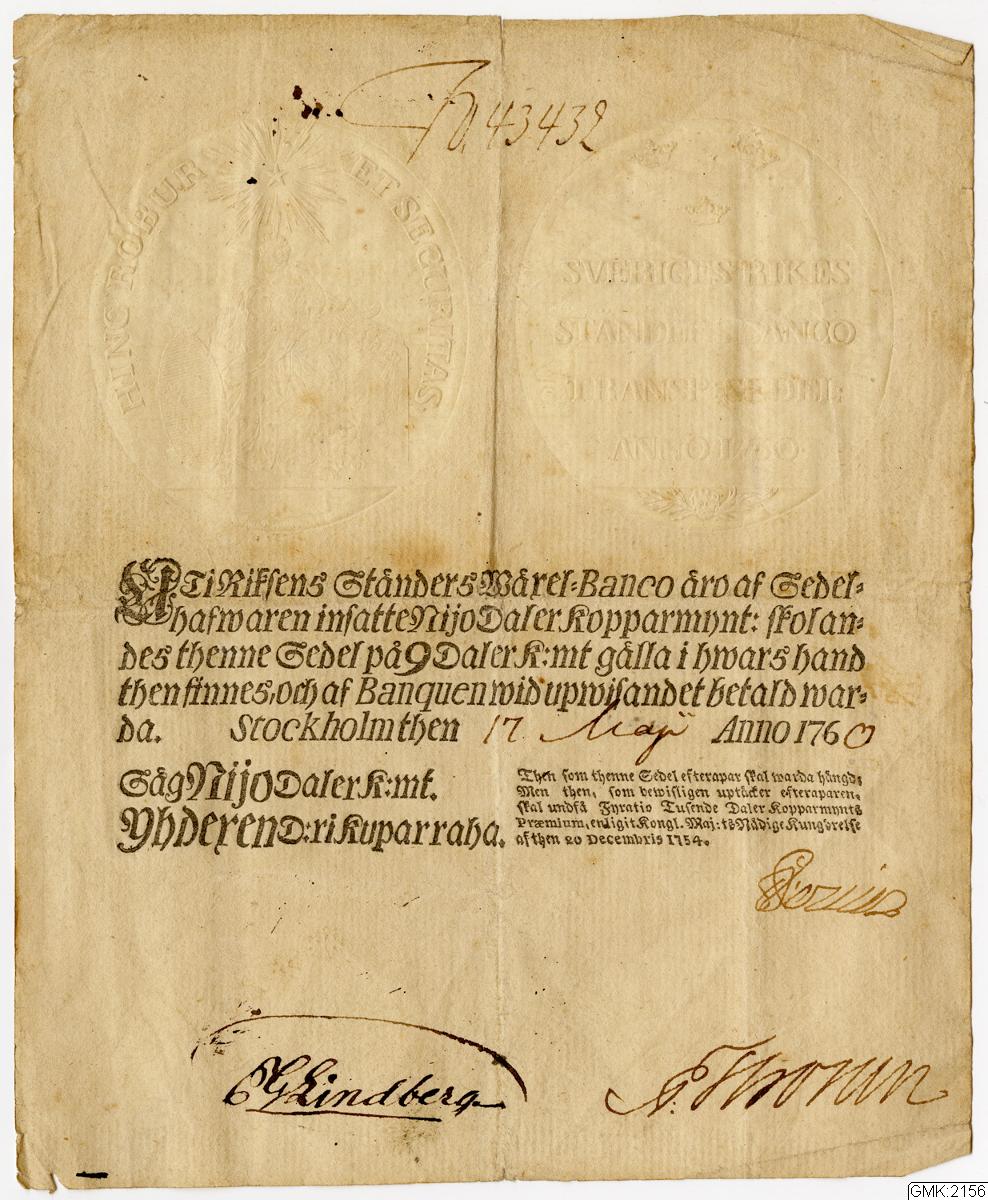 No. 43432
HINC ROBUR ET SECURITAS
SVERIGES RIKES
STÄNDERS BANCO
TRANSP: SEDEL:
ANNO 1760
UTi Riksens Ständers Wäxel-Banco äro af Sedel-
hafwaren insatte Nijo Daler Kopparmynt: skolan-
des thenne Sedel på 9 Daler K:mt gälla i hwars hand
then finnes, och af Banquen wid upwisandet betald war-
da. Stockholm then 17 Maji Anno 1760
Säg Nijo Daler K:mt.
Yhdexen D:ri Kuparraha.
Then som thenne Sedel efterapar skal warda hängd;
Men then, som bewisligen uptäcker efteraparen,
skal undfå Fyratio Tusende Daler Kopparmynts
Præmium, enligit Kongl. Maj:ts Nådige Kungörelse
af then 20 Decembris 1754.
Lindberg
GMK:2156